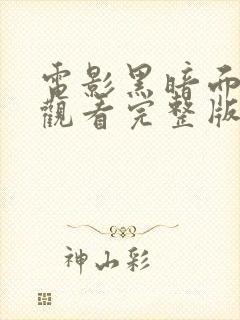 電影黑暗而
觀看完整版
神山彩